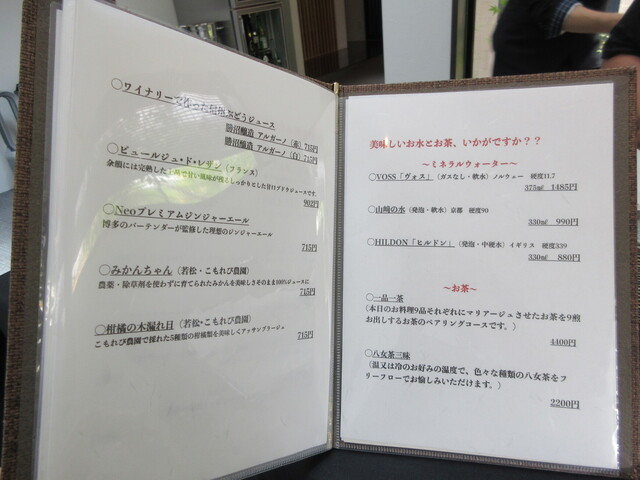 〇ワイナリーで作ったぶどうジュース
勝沼醸造 アルガーノ（赤）715円
勝沼醸造 アルガーノ（白）715円
〇ピュールジュ・ド・レザン（フランス）
余韻には完熟した上品で甘い風味が残るしっかりとした甘口ブドウジュースです。
902円
〇Neoプレミアムジンジャーエール
博多のバーテンダーが監修した理想のジンジャーエール
715円
〇みかんちゃん（若松・こもれび農園）
農薬・除草剤を使わずに育てられたみかんを美味しさそのまま100%ジュースに
715円
〇柑橘の木漏れ日（若松・こもれび農園）
こもれび農園で採れた5種類の柑橘類を美味しくアッサンブラージュ
715円
美味しいお水とお茶、いかがですか？？
～ミネラルウォーター～
〇VOSS「ヴォス」（ガスなし・軟水）ノルウェー 硬度11.7
375㎖ 1485円
〇山崎の水（発泡・軟水）京都 硬度90
330㎖ 990円
〇HILDON「ヒルドン」（発泡・中硬水）イギリス 硬度339
330㎖ 880円
～お茶～
〇一品一茶
（本日のお料理9品それぞれにマリアージュさせたお茶を9煎
お出しするお茶のペアリングコースです。）
4400円
〇八女茶三昧
（温又は冷のお好みの温度で、色々な種類の八女茶をフ
リーフローでお愉しみいただけます。）
2200円